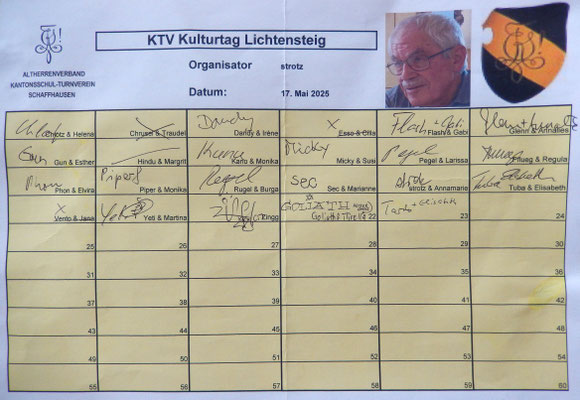 KTV Kulturtag Lichtensteig
Organisator strotz
ALTHERRENVERBAND
KANTONSSCHUL-TURNVEREIN
SCHAFFHAUSEN
Datum: 17. Mai 2025
Dandy x Flash + Gabi
Chrotz & Helena Chrusel & Traudel Dandy & Irène Esso & Cilla Flash & Gabi Glenn & Annalies
Gun Kuna Micky Pegel
Gun & Esther Hindu & Margrit Kuna & Monika Micky & Susi Pegel & Larissa Pflueg & Regula
Piper Regel sec Tuba Elisabeth
Phon & Elvira Piper & Monika Rugel & Burga Sec & Marianne strotz & Annamarie Tuba & Elisabeth
x Yeti GOLIATH
Vento & Jana Yeti & Martina Zingg 22 23 24
25 26 27 28 29 30
31 32 33 34 35 36
37 38 39 40 41 42
43 44 45 46 47 48
49 50 51 52 53 54
55 56 57 58 59 60